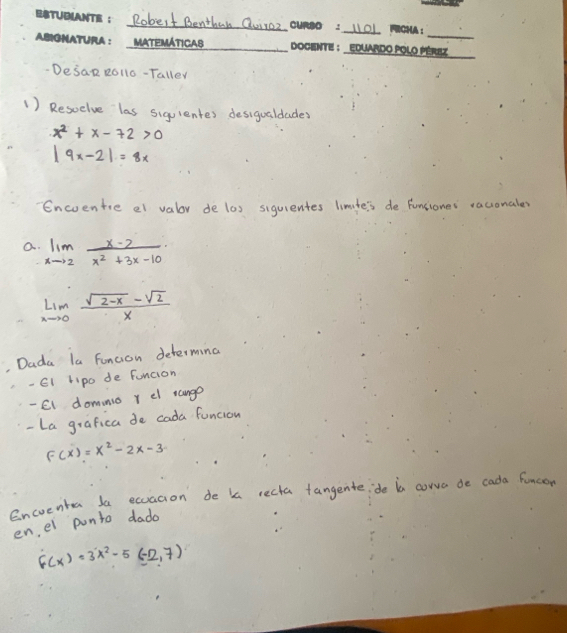 ESTUDIANTE : Robert Benthan Quiroz CURSO : 1101 FECHA :
ASIGNATURA : MATEMÁTICAS DOCENTE : EDUARDO POLO PÉREZ
-Desarrollo -Taller
1) Resuelve las siguientes desigualdades
x² + x - 72 > 0
| 9x-2 | = 8x
Encuentre el valor de los siguientes limites de funciones racionales
a. lim x→2 x-2 / x² + 3x - 10
Lim x→0 √2-x - √2 / x
. Dada la funcion determina
- El tipo de funcion
- El dominio y el rango
- La grafica de cada funcion
F(x) = x² - 2x - 3
Encuentra la ecuacion de la recta tangente de la curva de cada funcion
en el punto dado
F(x) = 3x² - 5 (-2,7)